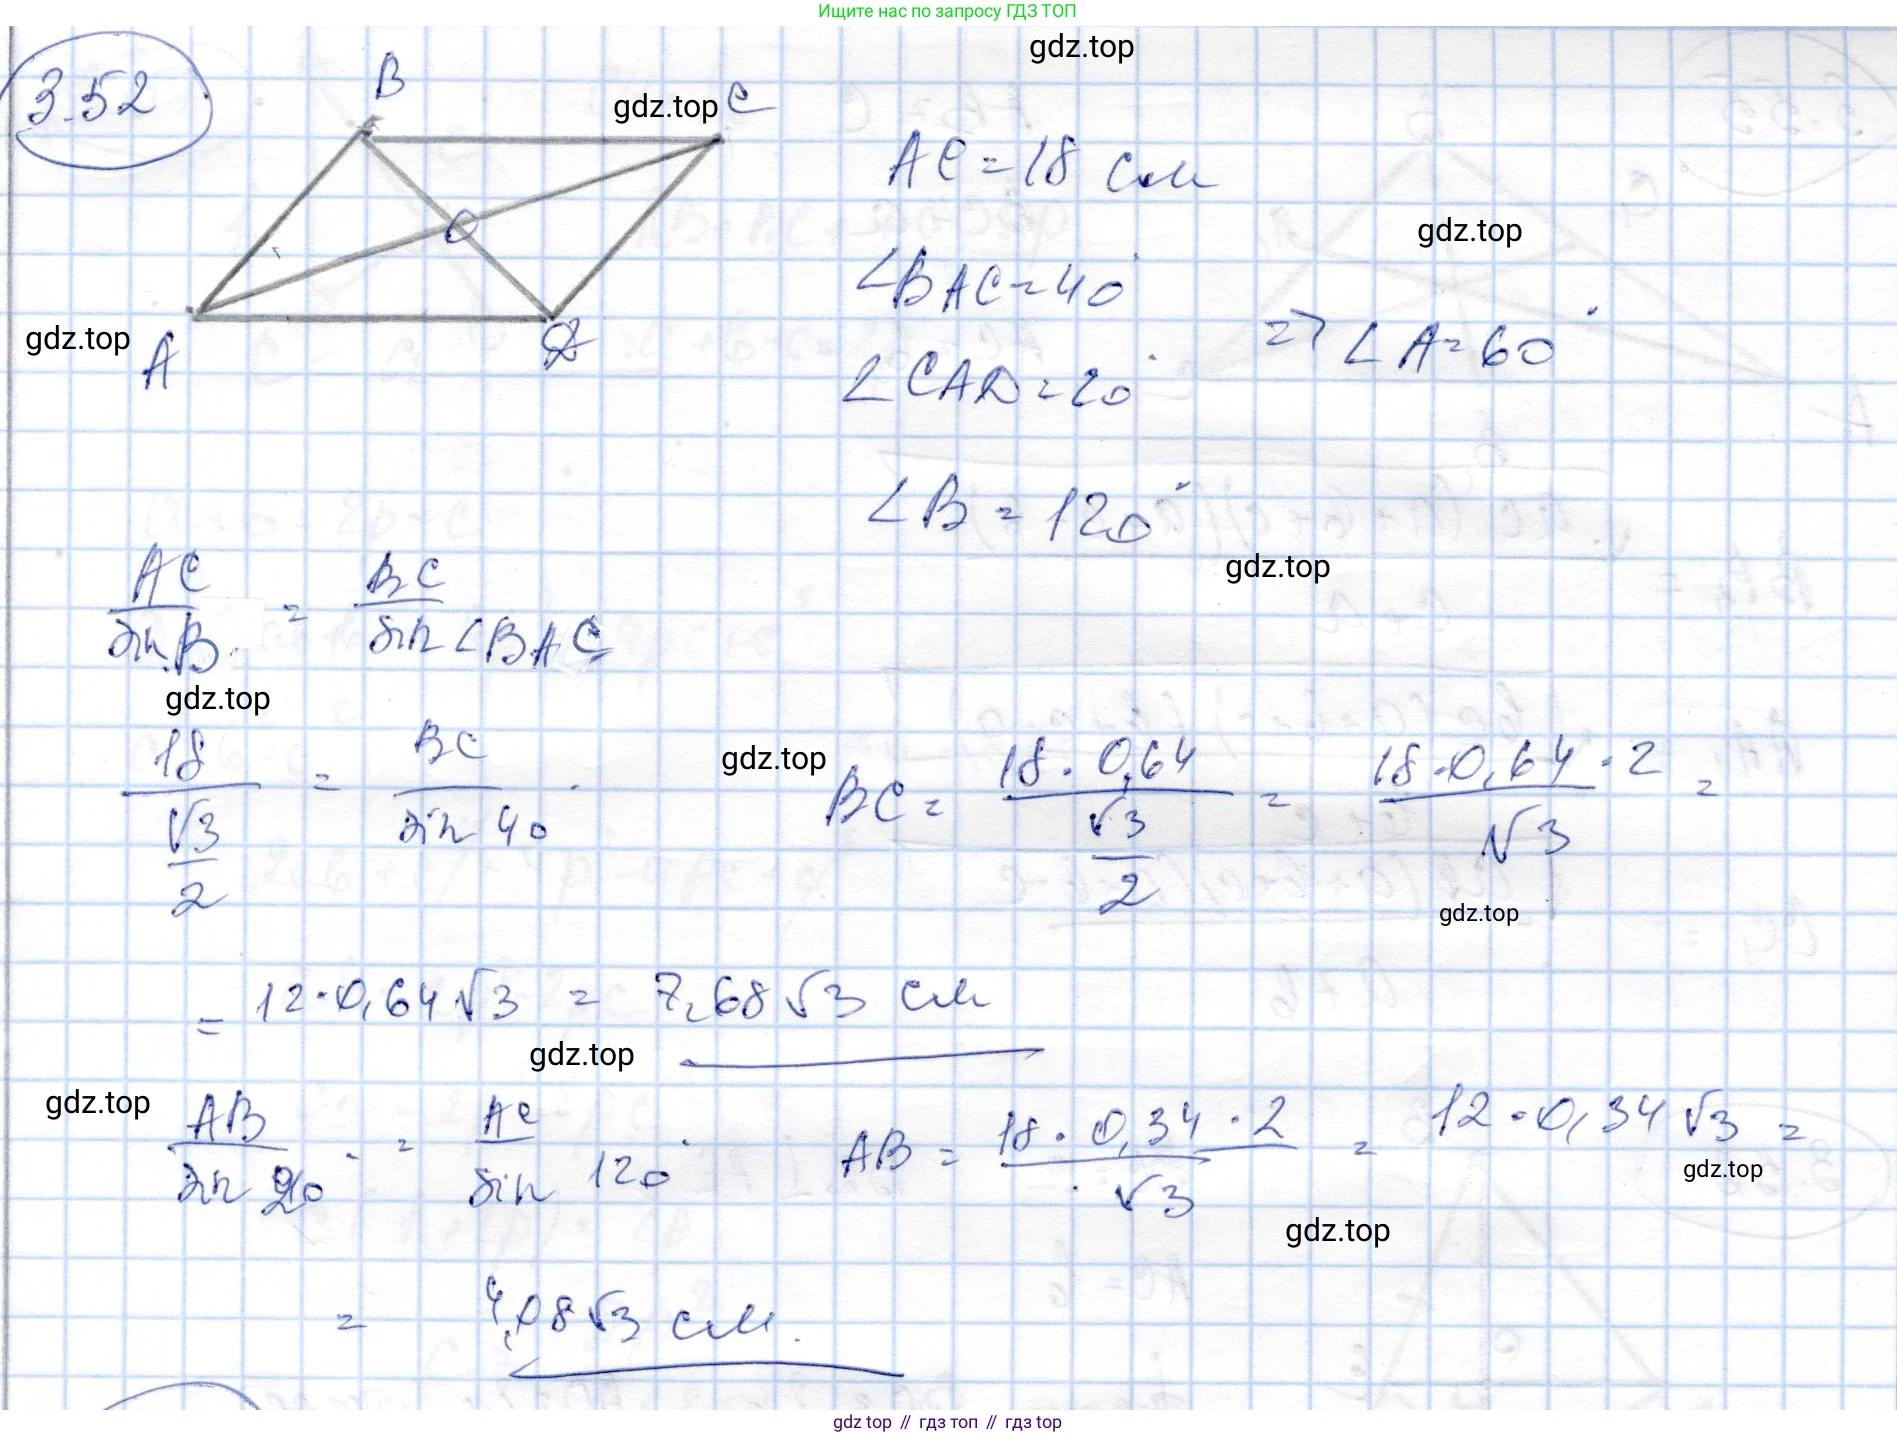 Ищите нас по запросу ГДЗ ТОП
gdz.top
3.52
B
gdz.top
C
AC = 18 см
gdz.top
O
∠BAC = 40°
gdz.top
A
D
∠CAD = 20°
=> ∠A = 60°
∠B = 120°
gdz.top
AC / sin B = BC / sin∠BAC
gdz.top
18 / (√3 / 2) = BC / sin 40°
gdz.top
BC = 18 · 0,64 / (√3 / 2) = 18 · 0,64 · 2 / √3 =
gdz.top
= 12 · 0,64 √3 = 7,68 √3 см
gdz.top
gdz.top
AB / sin 20° = AC / sin 120°
AB = 18 · 0,34 · 2 / √3 = 12 · 0,34 √3 =
gdz.top
gdz.top
= 4,08 √3 см.
gdz top // гдз топ // гдз top